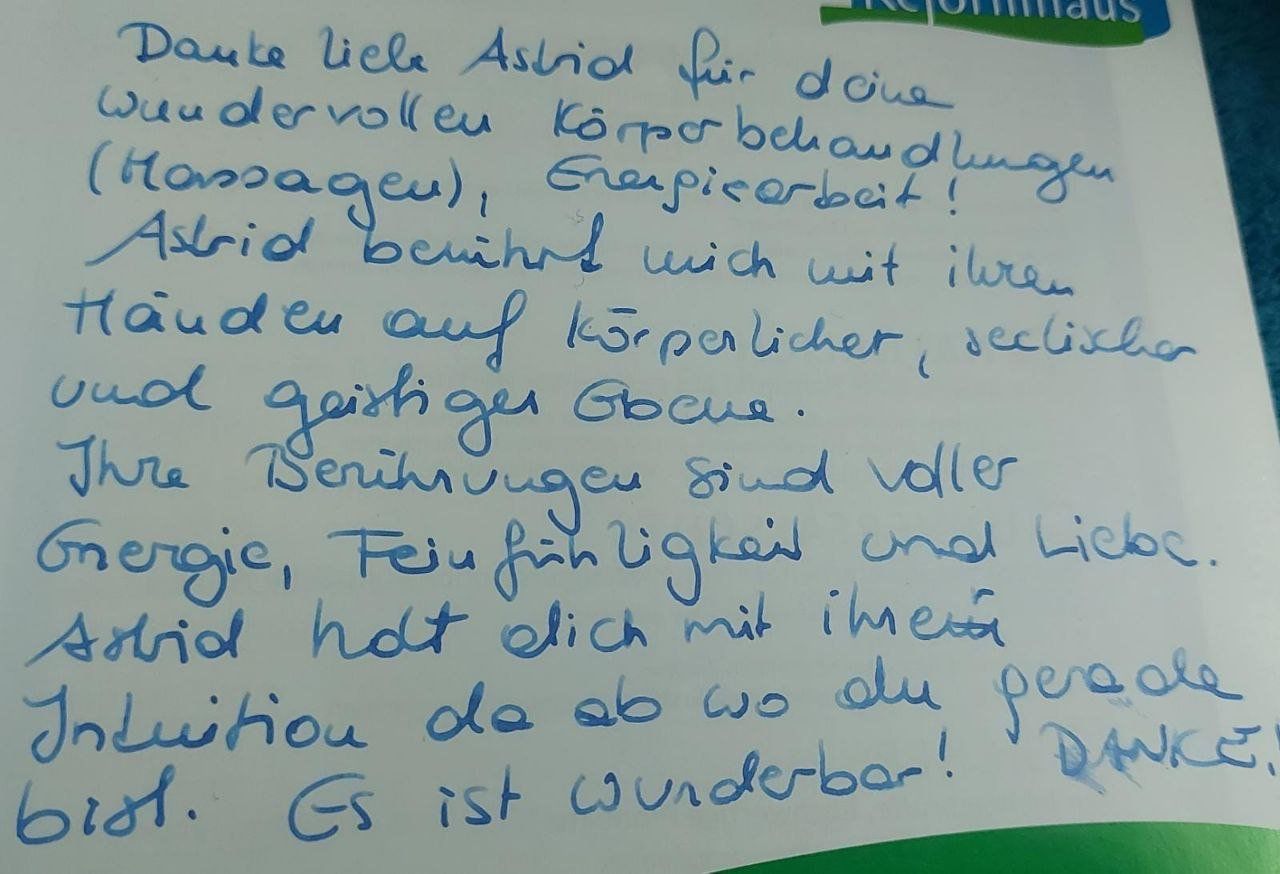 Reformhaus
Danke liebe Astrid für deine
wundervollen Körperbehandlungen
(Massagen), Energiearbeit!
Astrid berührt mich mit ihren
Händen auf körperlicher, seelischer
und geistiger Ebene.
Ihre Berührungen sind voller
Energie, Feinfühligkeit und Liebe.
Astrid holt dich mit ihrer
Intuition da ab wo du gerade
bist. Es ist wunderbar! DANKE!